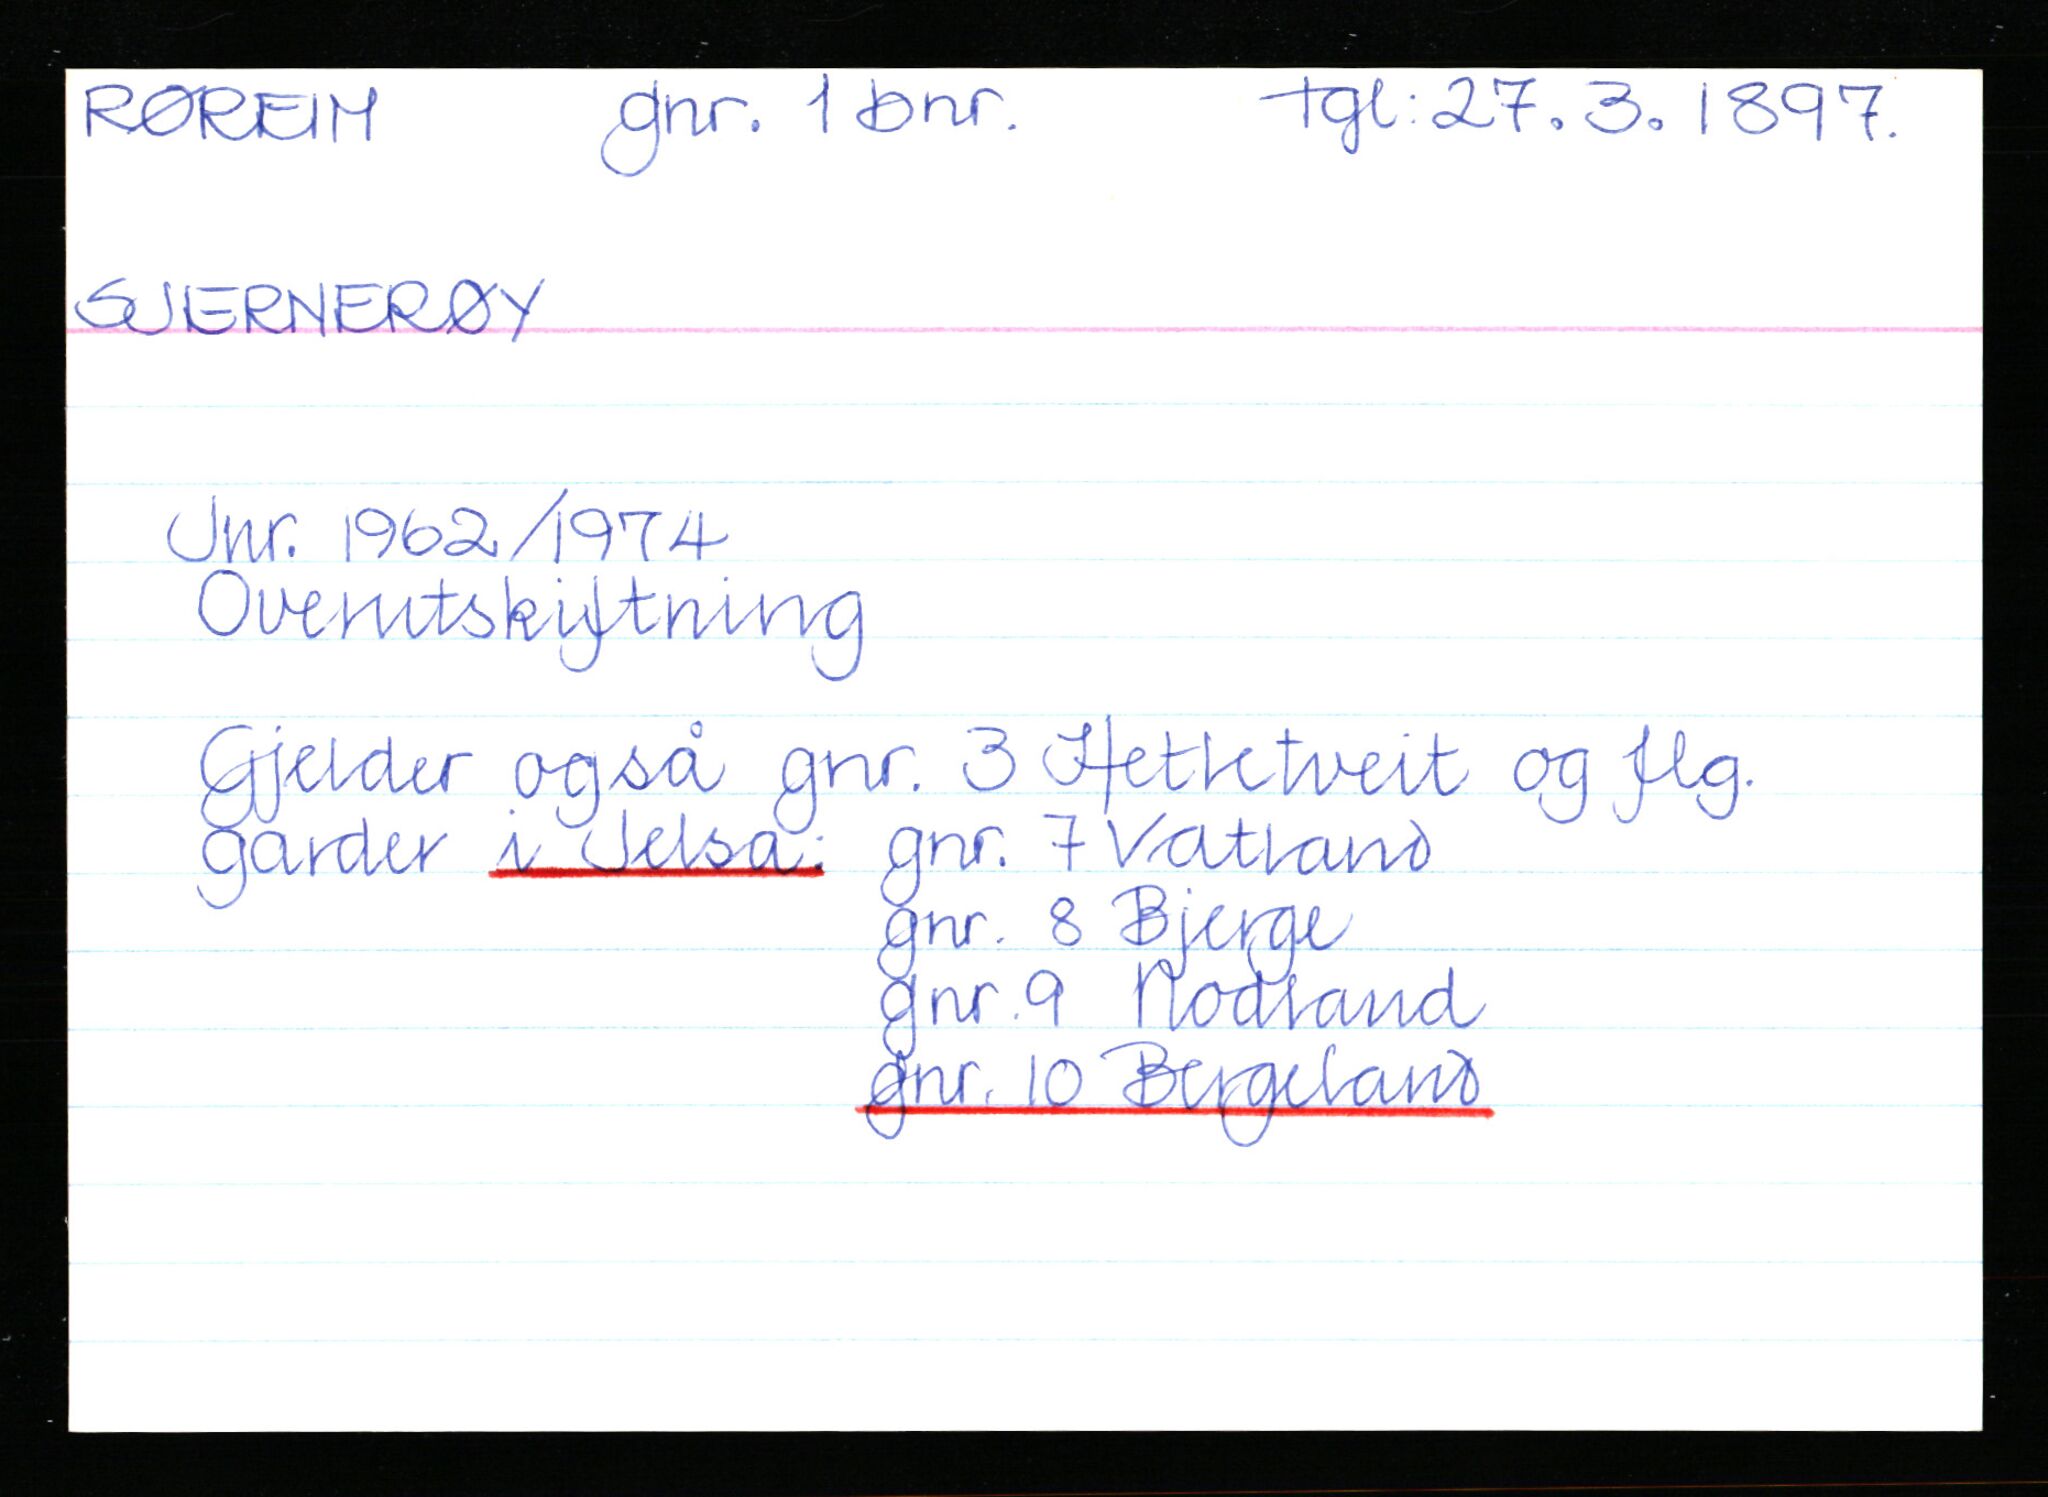 RØREIM gnr. 1 bnr. tgl: 27. 3. 1897.
SJERNERØY
Jnr. 1962/1974
Overutskiftning
Gjelder også gnr. 3 Hetletveit og flg.
garder i Jelsa: gnr. 7 Vatland
gnr. 8 Bjerge
gnr. 9 Nodland
gnr. 10 Bergeland